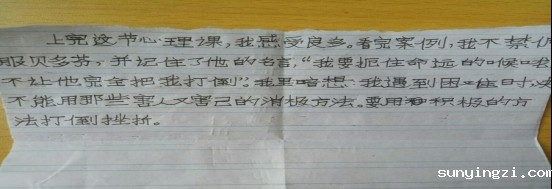 上完这节心理课,我感受良多。看完案例,我不禁佩
服贝多芬,并记住了他的名言,“我要扼住命运的咽喉
不让他完全把我打倒”。我暗想:我遇到困难时
不能用那些害人又害己的消极方法。要用积极的方
法打倒挫折。
sunyingzi.com